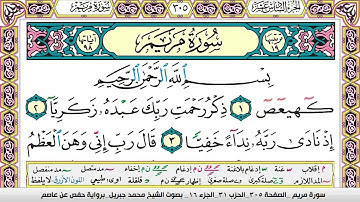 الجزء السادس عشر ٣٠٥ سورة مريم
سُورَةُ مَرْيَمَ
آياتها ٩٨
ترتيبها ١٩
بِسْمِ ٱللَّهِ ٱلرَّحْمَٰنِ ٱلرَّحِيمِ
كٓهيعٓصٓ ١ ذِكْرُ رَحْمَتِ رَبِّكَ عَبْدَهُۥ زَكَرِيَّآ ٢
إِذْ نَادَىٰ رَبَّهُۥ نِدَآءً خَفِيًّا ٣ قَالَ رَبِّ إِنِّى وَهَنَ ٱلْعَظْمُ
سورة مريم _ الصفحة ٣٠٥ _ الحزب ٣١ _ الجزء ١٦ _ بصوت الشيخ محمد جبريل _ برواية حفص عن عاصم